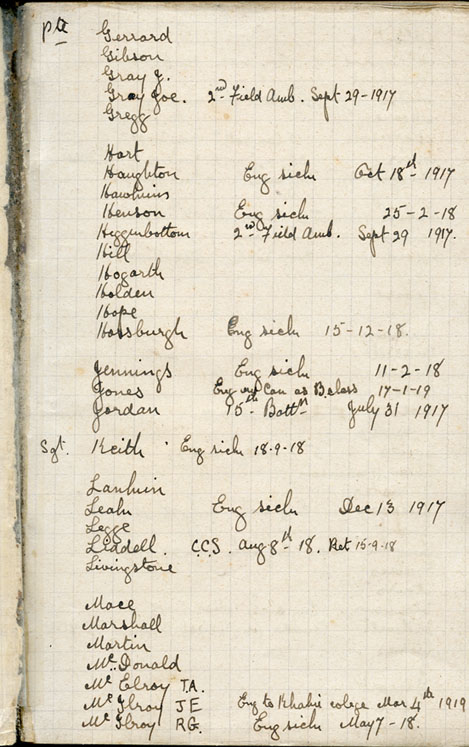 Pte Gerrard
Gibson
Gray J.
Gray Joe. 2nd Field Amb. Sept 29-1917
Gregg
Hart
Haughton Eng sick Oct 18th 1917
Hawkins
Henson Eng sick 25-2-18
Higginbottom 2nd Field Amb. Sept 29 1917.
Hill
Hogarth
Holden
Hope
Horsburgh Eng sick 15-12-18.
Jennings Eng sick 11-2-18
Jones Eng Can as B class 17-1-19
Jordan 15th Battn July 31 1917
Sgt. Keith Eng sick 18-9-18
Leahn Eng sick Dec 13 1917
Legge
Liddell. C.C.S. Aug 8th-18. Ret 15-9-18
Livingstone
Mace
Marshall
Martin
Mc Donald
Mc Elroy T.A.
Mc Ilroy J E Eng to Khaki colege Mar 4th 1919
Mc Ilroy R.G. Eng sick May 7-18.